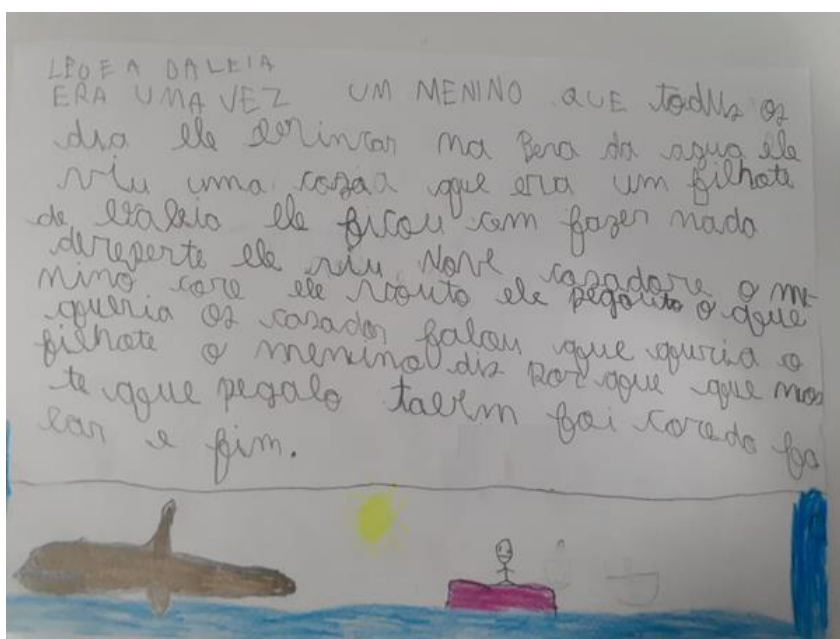 LEO E A BALEIA
ERA UMA VEZ UM MENINO QUE todus os
dia ele brincar na Bera da agua ele
viu uma cozaa que era um filhote
de baleia ele ficou sem fazer nada
dereperte ele viu Nove casadore o me
nino core ele vouto ele pegouto o que
queria os casador falou que quria o
filhote o menino dis por que que
te que pegalo foi corendo fa
lar e fim.